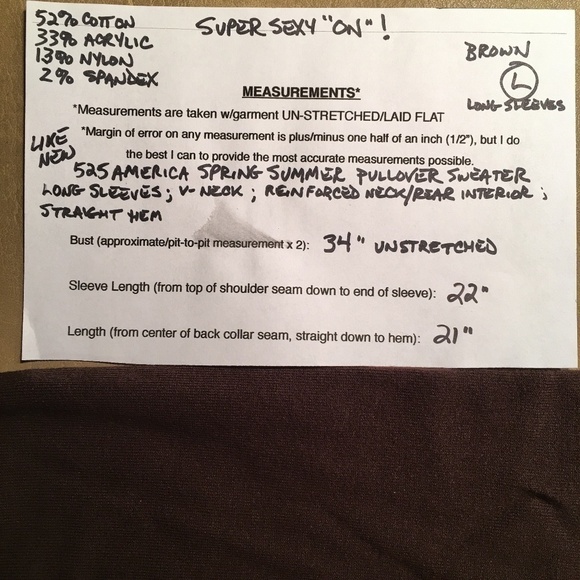 52% COTTON
33% ACRYLIC
13% NYLON
2% SPANDEX
SUPER SEXY "ON"!
BROWN
L
LONG SLEEVES
MEASUREMENTS*
*Measurements are taken w/garment UN-STRETCHED/LAID FLAT
*Margin of error on any measurement is plus/minus one half of an inch (1/2"), but I do
the best I can to provide the most accurate measurements possible.
LIKE
NEW
525 AMERICA SPRING SUMMER PULLOVER SWEATER
LONG SLEEVES; V-NECK; REINFORCED NECK/REAR INTERIOR;
STRAIGHT HEM
Bust (approximate/pit-to-pit measurement x 2): 34" UNSTRETCHED
Sleeve Length (from top of shoulder seam down to end of sleeve): 22"
Length (from center of back collar seam, straight down to hem): 21"